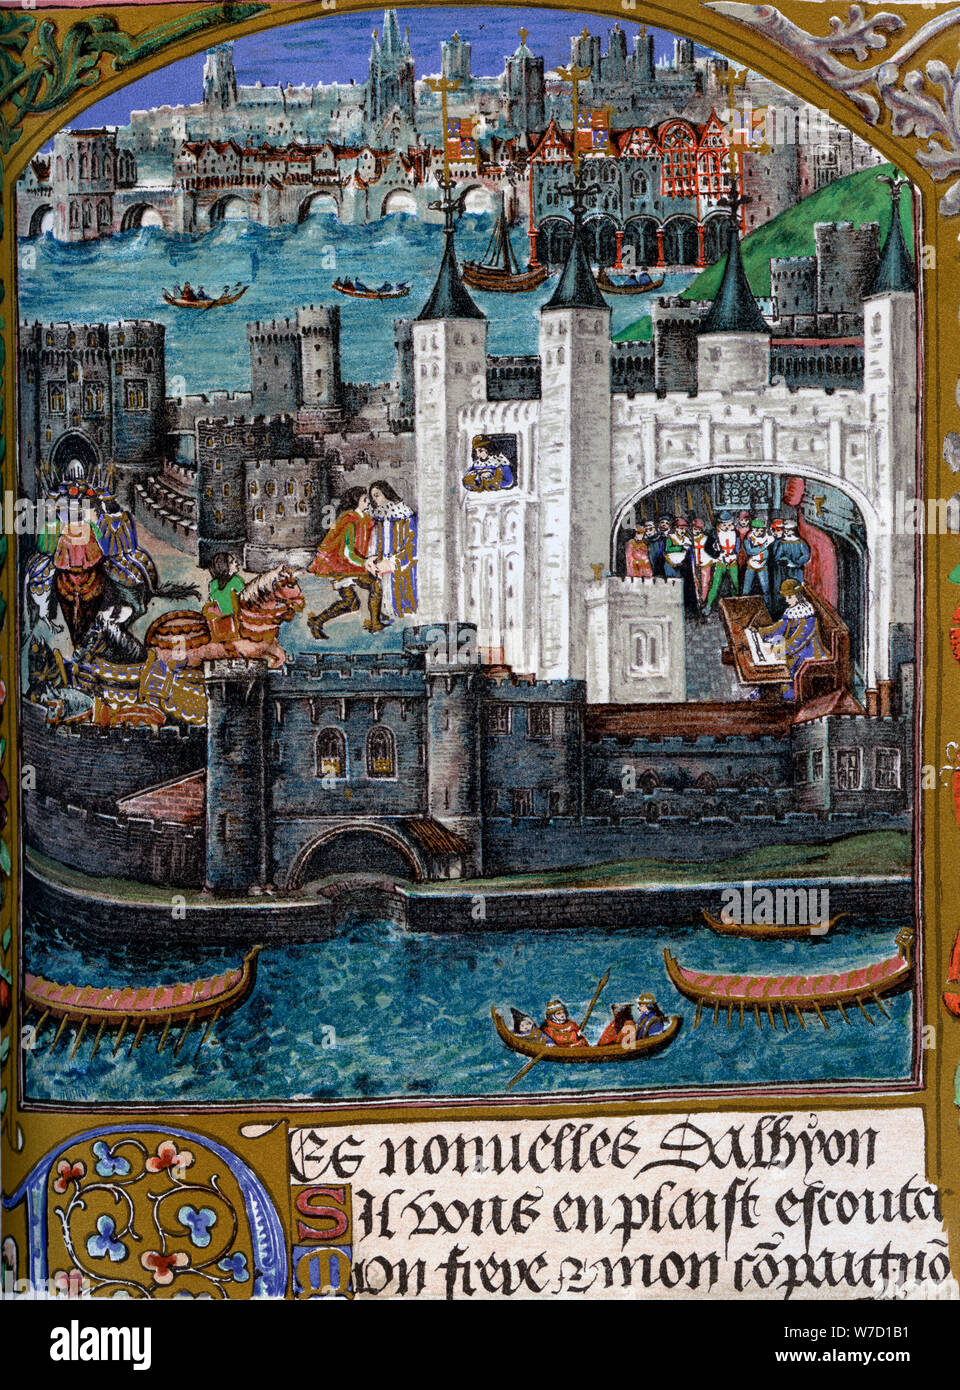 Des nouuelles Dalbyon
S'il vous en plaist escouter
Mon frere & mon cõpaignõ
alamy
Image ID: W7D1B1
www.alamy.com